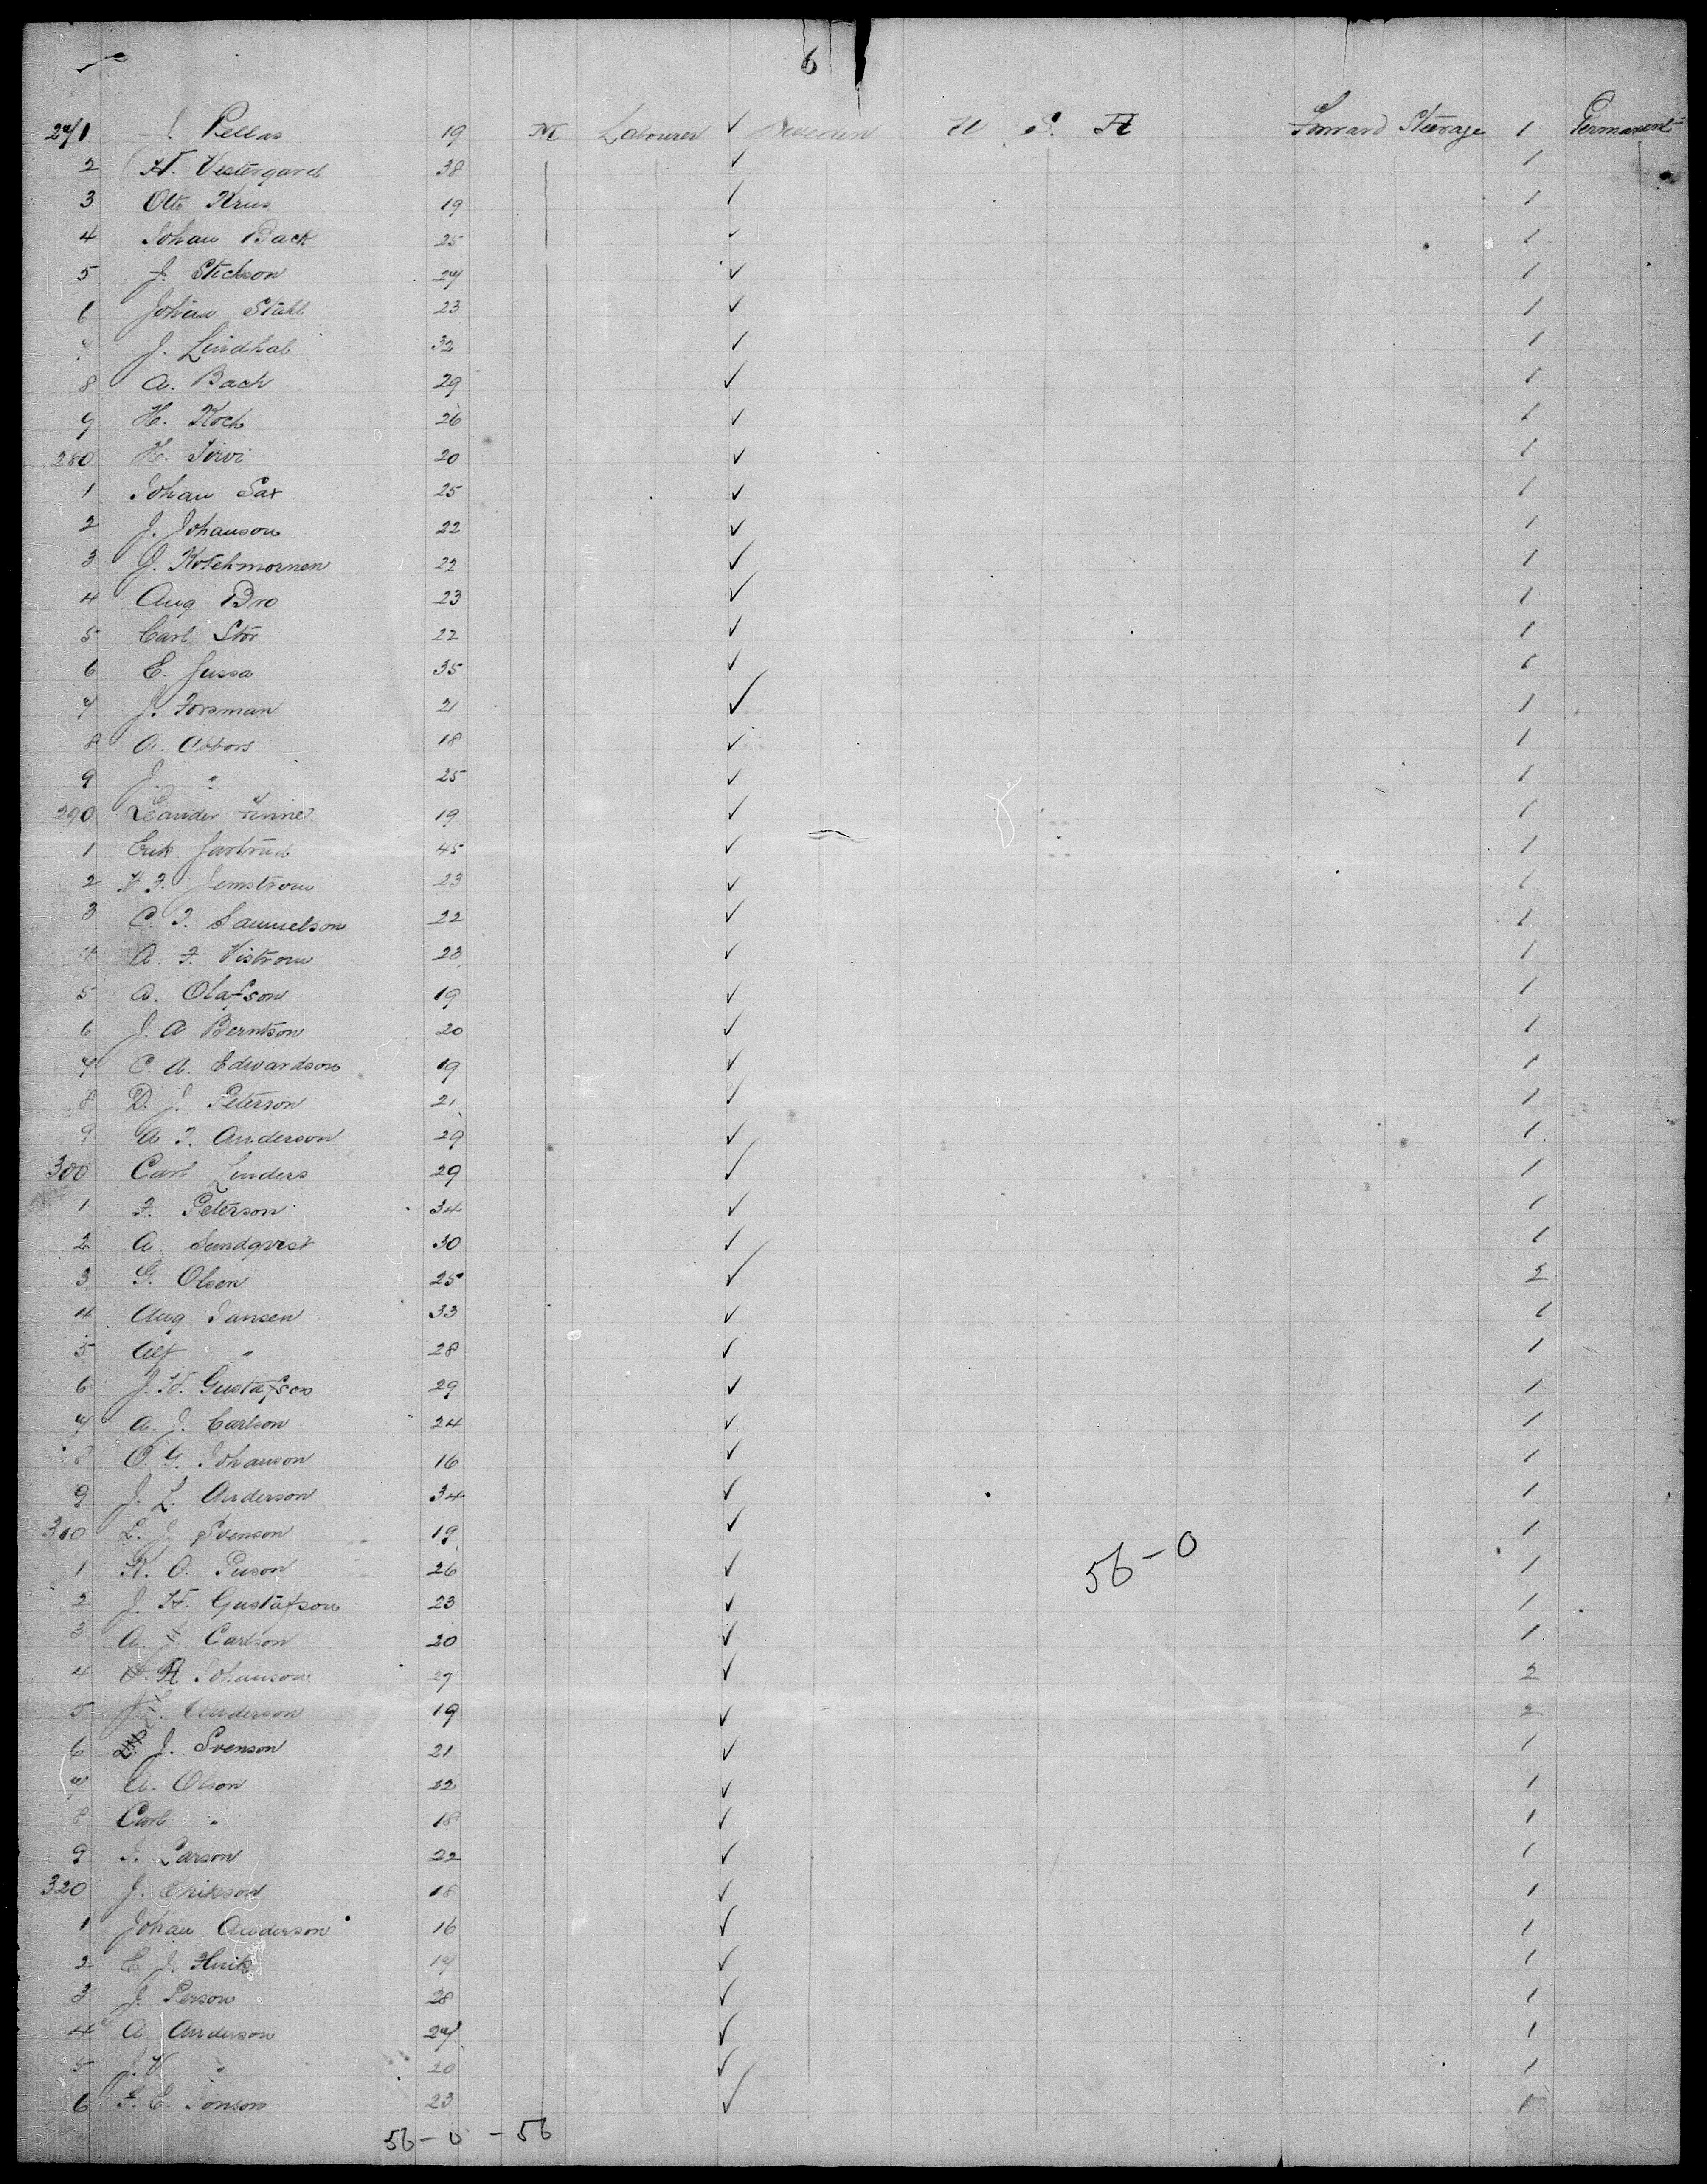 6
271 J. Pellas 19 M Labourer ✓ Sweden U. S. A Forward Steerage 1 Permanent
2 H. Vestergard 38 ✓ 1
3 Otto Krus 19 ✓ 1
4 Johan Back 25 ✓ 1
5 J. Stickson 27 ✓ 1
6 Johan Stahl 23 ✓ 1
7 J. Lindhal 32 ✓ 1
8 A. Bach 29 ✓ 1
9 H. Koch 26 ✓ 1
280 H. Jervi 20 ✓ 1
1 Johan Sax 25 ✓ 1
2 J. Johanson 22 ✓ 1
3 J. Kotchmornen 22 ✓ 1
4 Aug Bro 23 ✓ 1
5 Carl Stor 22 ✓ 1
6 E. Jussa 35 ✓ 1
7 J. Forsman 21 ✓ 1
8 A. Abbors 18 ✓ 1
9 J. " 25 ✓ 1
290 Leander Finne 19 ✓ 1
1 Erik 45 ✓ 1
2 23 ✓ 1
3 C. J. Samuelson 22 ✓ 1
4 A. F. Vistrom 23 ✓ 1
5 A. Olafson 19 ✓ 1
6 J. A Berntson 20 ✓ 1
7 C. A. Edwardson 19 ✓ 1
8 D. J. Peterson 21 ✓ 1
9 A J. Anderson 29 ✓ 1
300 Carl Linders 29 ✓ 1
1 F. Peterson 34 ✓ 1
2 A. Sandqvist 30 ✓ 1
3 G. Olsen 25 ✓ 2
4 Aug Jansen 33 ✓ 1
5 Alf " 28 ✓ 1
6 J. H. Gustafson 29 ✓ 1
7 A. J. Carlson 24 ✓ 1
8 O. G. Johanson 16 ✓ 1
9 J. L. Anderson 34 ✓ 1
310 L. J. Svenson 19 ✓ 1
1 K. O. 26 ✓ 56 - 0 1
2 J. H. Gustafson 23 ✓ 1
3 A. Carlson 20 ✓ 1
4 Johanson 27 ✓ 2
5 Anderson 19 ✓ 2
6 J. Svenson 21 ✓ 1
7 A. Olson 22 ✓ 1
8 Carl " 18 ✓ 1
9 J. Larson 22 ✓ 1
320 J. Erikson 18 ✓ 1
1 Johan Anderson 16 ✓ 1
2 E J. 17 ✓ 1
3 J. Person 28 ✓ 1
4 A Anderson 27 ✓ 1
5 J. V " 20 ✓ 1
6 F. E. Jonson 23 ✓ 1
56 - 0 - 56